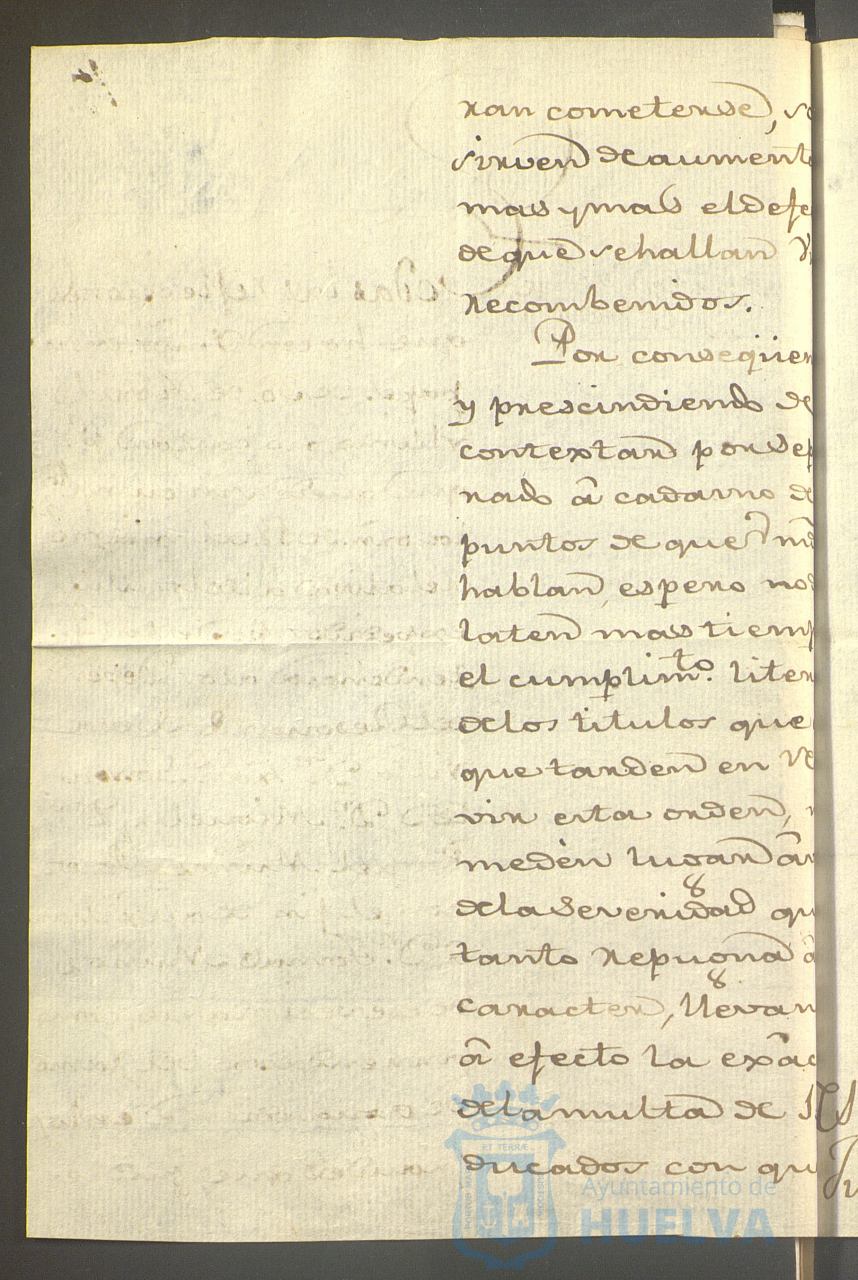 ran cometerse, so
sirven de aumento
mas y mas el defe
de que se hallan
recombenidos.
Por conseqüen
y prescindiendo de
contextan por sepa
nado â cadauno de
puntos de que
hablan, espero no
laten mas tiemp
el cumplim.to liter
de los titulos que
que tarden en re
vir esta orden,
me dèn lugar â
de la severidad qu
tanto repugna â
caracter, llevan
â efecto la exâc
de la multa de
ducados con qu
ET TERRAE
Ayuntamiento de
HUELVA